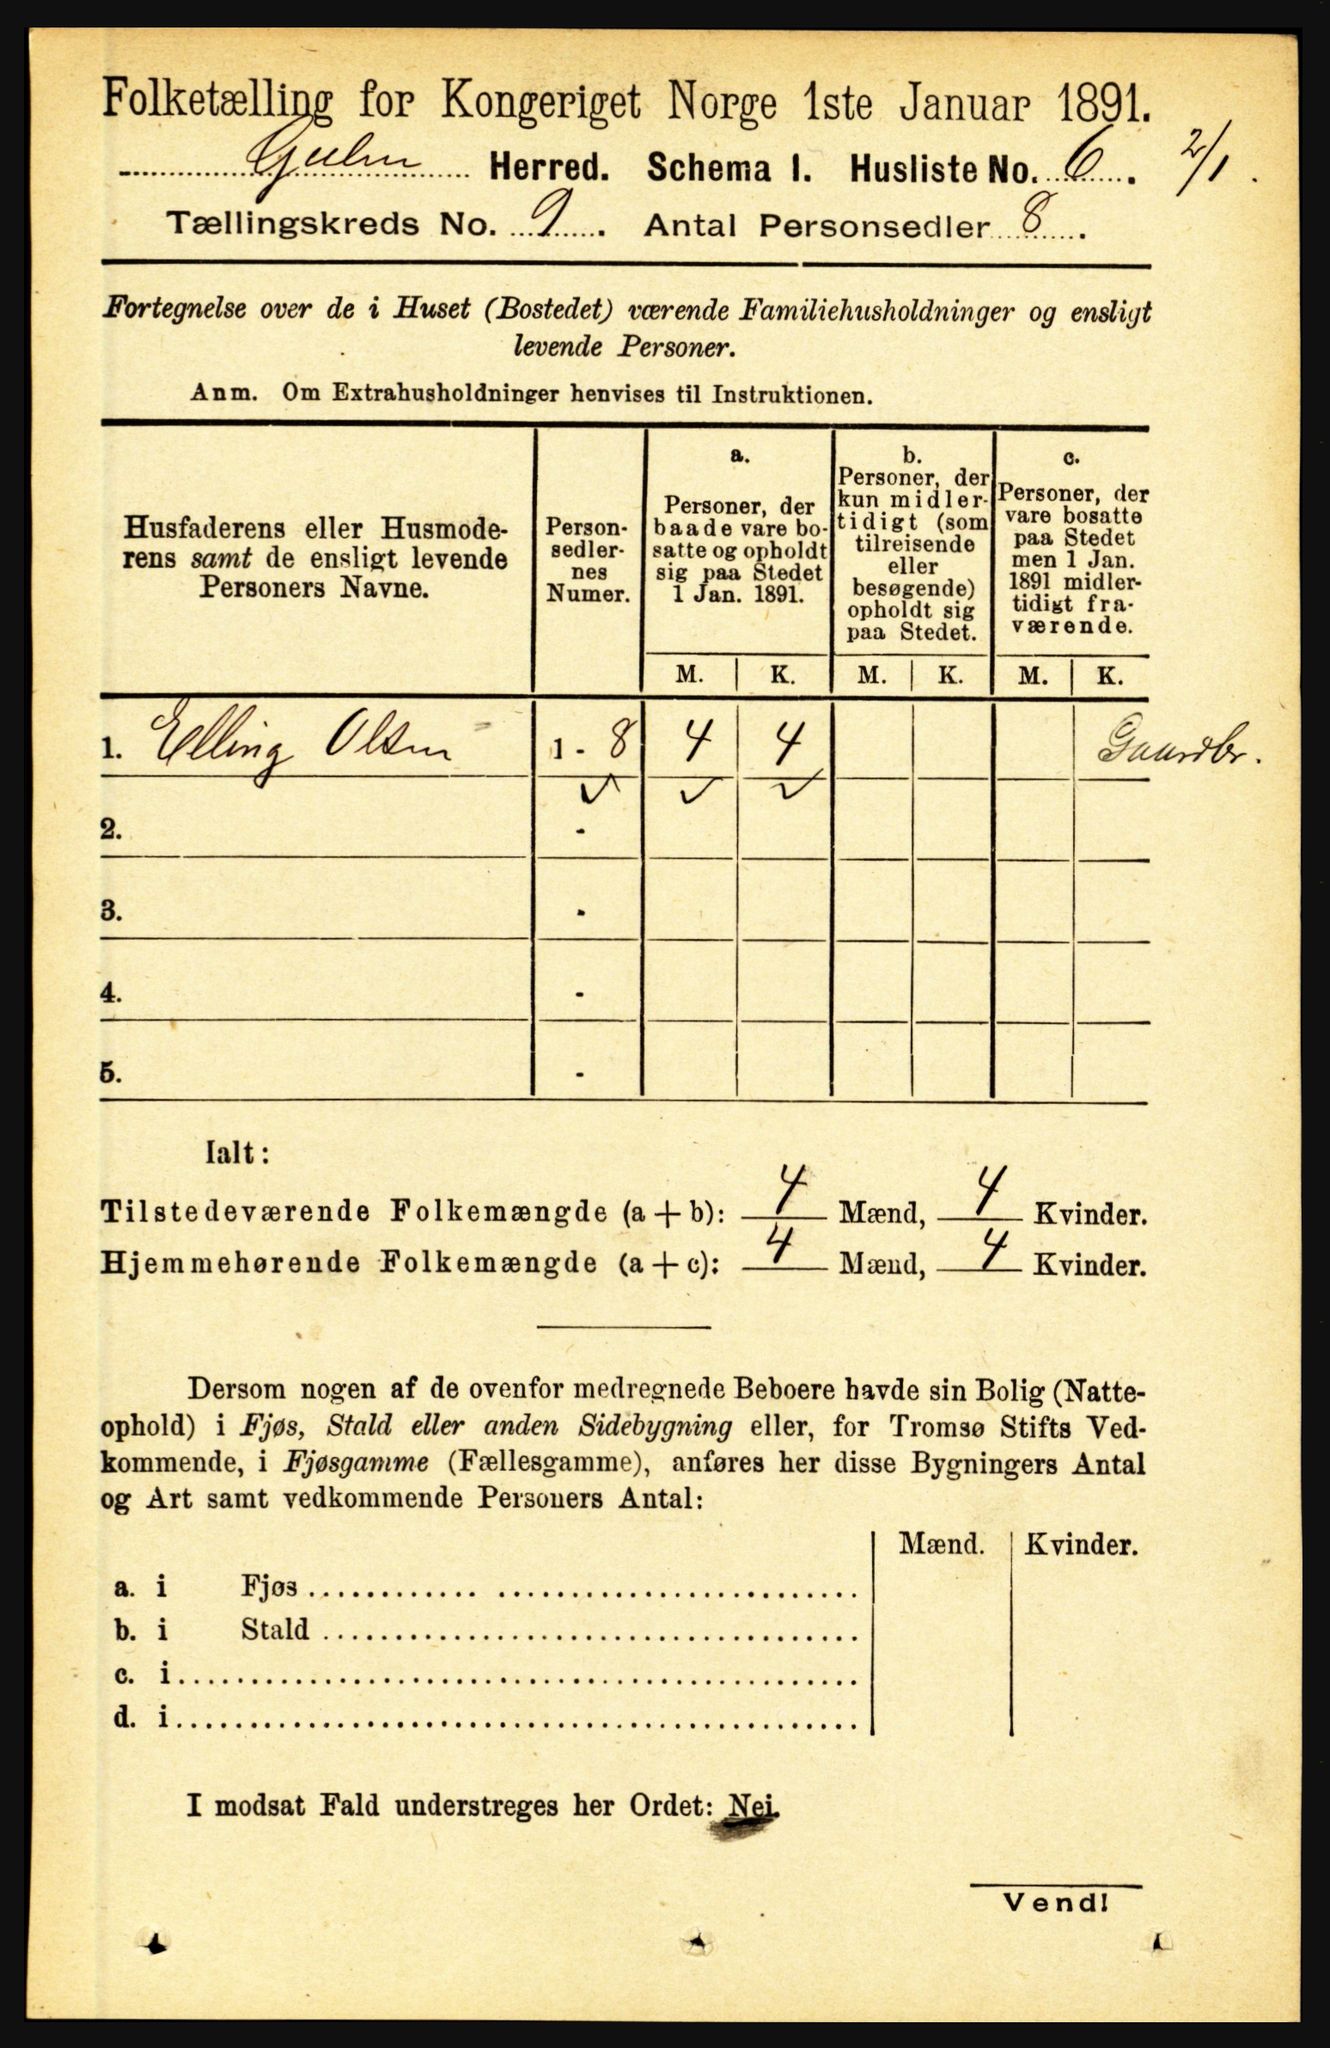 Folketælling for Kongeriget Norge 1ste Januar 1891.
Gulen Herred. Schema I. Husliste No. 6. 2/1.
Tællingskreds No. 9. Antal Personsedler 8.
Fortegnelse over de i Huset (Bostedet) værende Familiehusholdninger og ensligt
levende Personer.
Anm. Om Extrahusholdninger henvises til Instruktionen.
Husfaderens eller Husmode-
rens samt de ensligt levende
Personers Navne.
Person-
sedler-
nes
Numer.
a.
Personer, der
baade vare bo-
satte og opholdt
sig paa Stedet
1 Jan. 1891.
b.
Personer, der
kun midler-
tidigt (som
tilreisende
eller
besøgende)
opholdt sig
paa Stedet.
c.
Personer, der
vare bosatte
paa Stedet
men 1 Jan.
1891 midler-
tidigt fra-
værende.
M. K. M. K. M. K.
1. Elling Olsen 1 - 8 4 4 Gaardbr.
2. -
3. -
4. -
5. -
Ialt:
Tilstedeværende Folkemængde (a + b): 4 Mænd, 4 Kvinder.
Hjemmehørende Folkemængde (a + c): 4 Mænd, 4 Kvinder.
Dersom nogen af de ovenfor medregnede Beboere havde sin Bolig (Natte-
ophold) i Fjøs, Stald eller anden Sidebygning eller, for Tromsø Stifts Ved-
kommende, i Fjøsgamme (Fællesgamme), anføres her disse Bygningers Antal
og Art samt vedkommende Personers Antal:
Mænd. Kvinder.
a. i Fjøs
b. i Stald
c. i
d. i
I modsat Fald understreges her Ordet: Nei.
Vend!